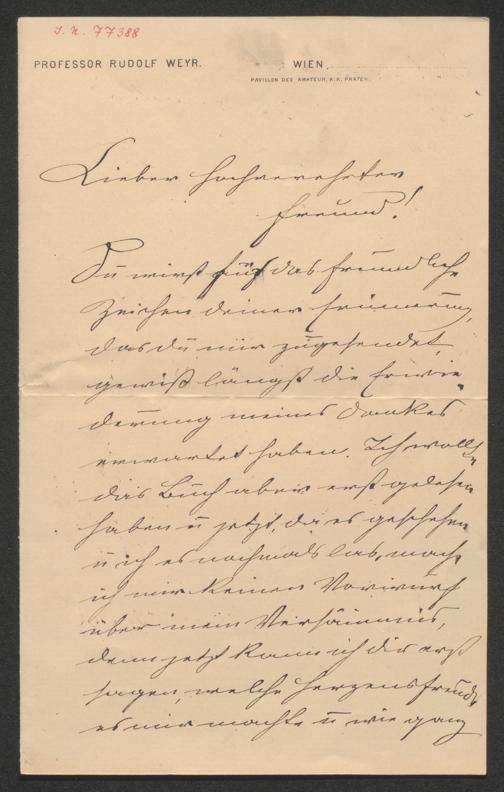 J. N. 77388
PROFESSOR RUDOLF WEYR.
WIEN
PAVILLON DES AMATEUR, K. K. PRATER.
Lieber hochverehrter
Freund!
Du wirst für das freundliche
Zeichen deiner Erinnerung,
das du mir zugesendet
gewiß längst die Erwie„
derung meines Dankes
erwartet haben. Ich wollte
das Buch aber erst gelesen
haben u jetzt, da es geschehen
u ich es nochmals las, mache
ich mir keinen Vorwurf
über mein Versäumnis,
denn jetzt kann ich dir erst
sagen, welche Herzensfreude
es mir machte u wie ganz